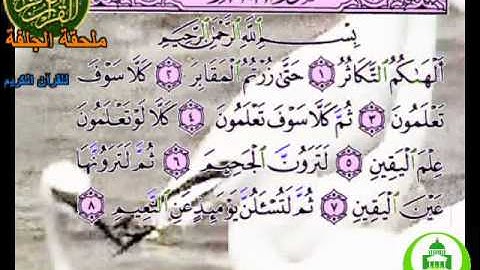 بِسْمِ ٱللَّهِ ٱلرَّحْمَٰنِ ٱلرَّحِيمِ
أَلْهَىٰكُمُ ٱلتَّكَاثُرُ ١ حَتَّىٰ زُرْتُمُ ٱلْمَقَابِرَ ٢ كَلَّا سَوْفَ
تَعْلَمُونَ ٣ ثُمَّ كَلَّا سَوْفَ تَعْلَمُونَ ٤ كَلَّا لَوْ تَعْلَمُونَ
عِلْمَ ٱلْيَقِينِ ٥ لَتَرَوُنَّ ٱلْجَحِيمَ ٦ ثُمَّ لَتَرَوُنَّهَا
عَيْنَ ٱلْيَقِينِ ٧ ثُمَّ لَتُسْـَٔلُنَّ يَوْمَئِذٍ عَنِ ٱلنَّعِيمِ ٨
ملحقة الجلفة
للقرآن الكريم